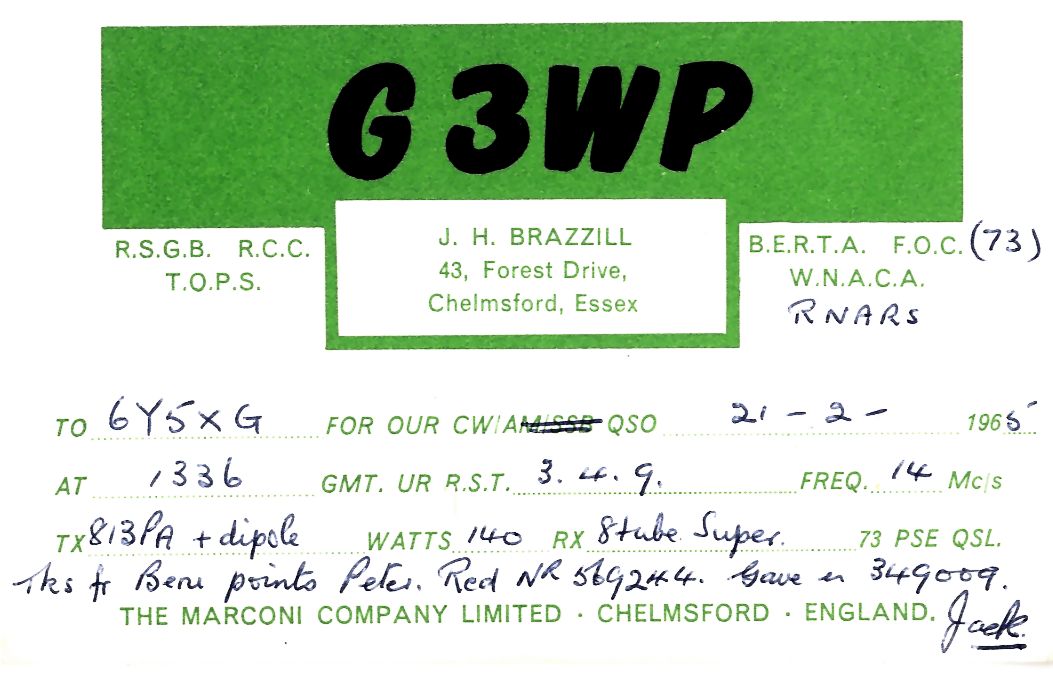 G3WP
R.S.G.B. R.C.C.
T.O.P.S.
J. H. BRAZZILL
43, Forest Drive,
Chelmsford, Essex
B.E.R.T.A. F.O.C. (73)
W.N.A.C.A.
RNARS
TO 6Y5XG FOR OUR CW/AM/SSB QSO 21 - 2 - 1965
AT 1336 GMT. UR R.S.T. 3.4.9. FREQ. 14 Mc/s
TX 813PA + dipole WATTS 140 RX 8 tube Super. 73 PSE QSL.
Tks fr Beru points Peter. Rcd NR 569244. Gave u 349009.
THE MARCONI COMPANY LIMITED · CHELMSFORD · ENGLAND.
Jack.